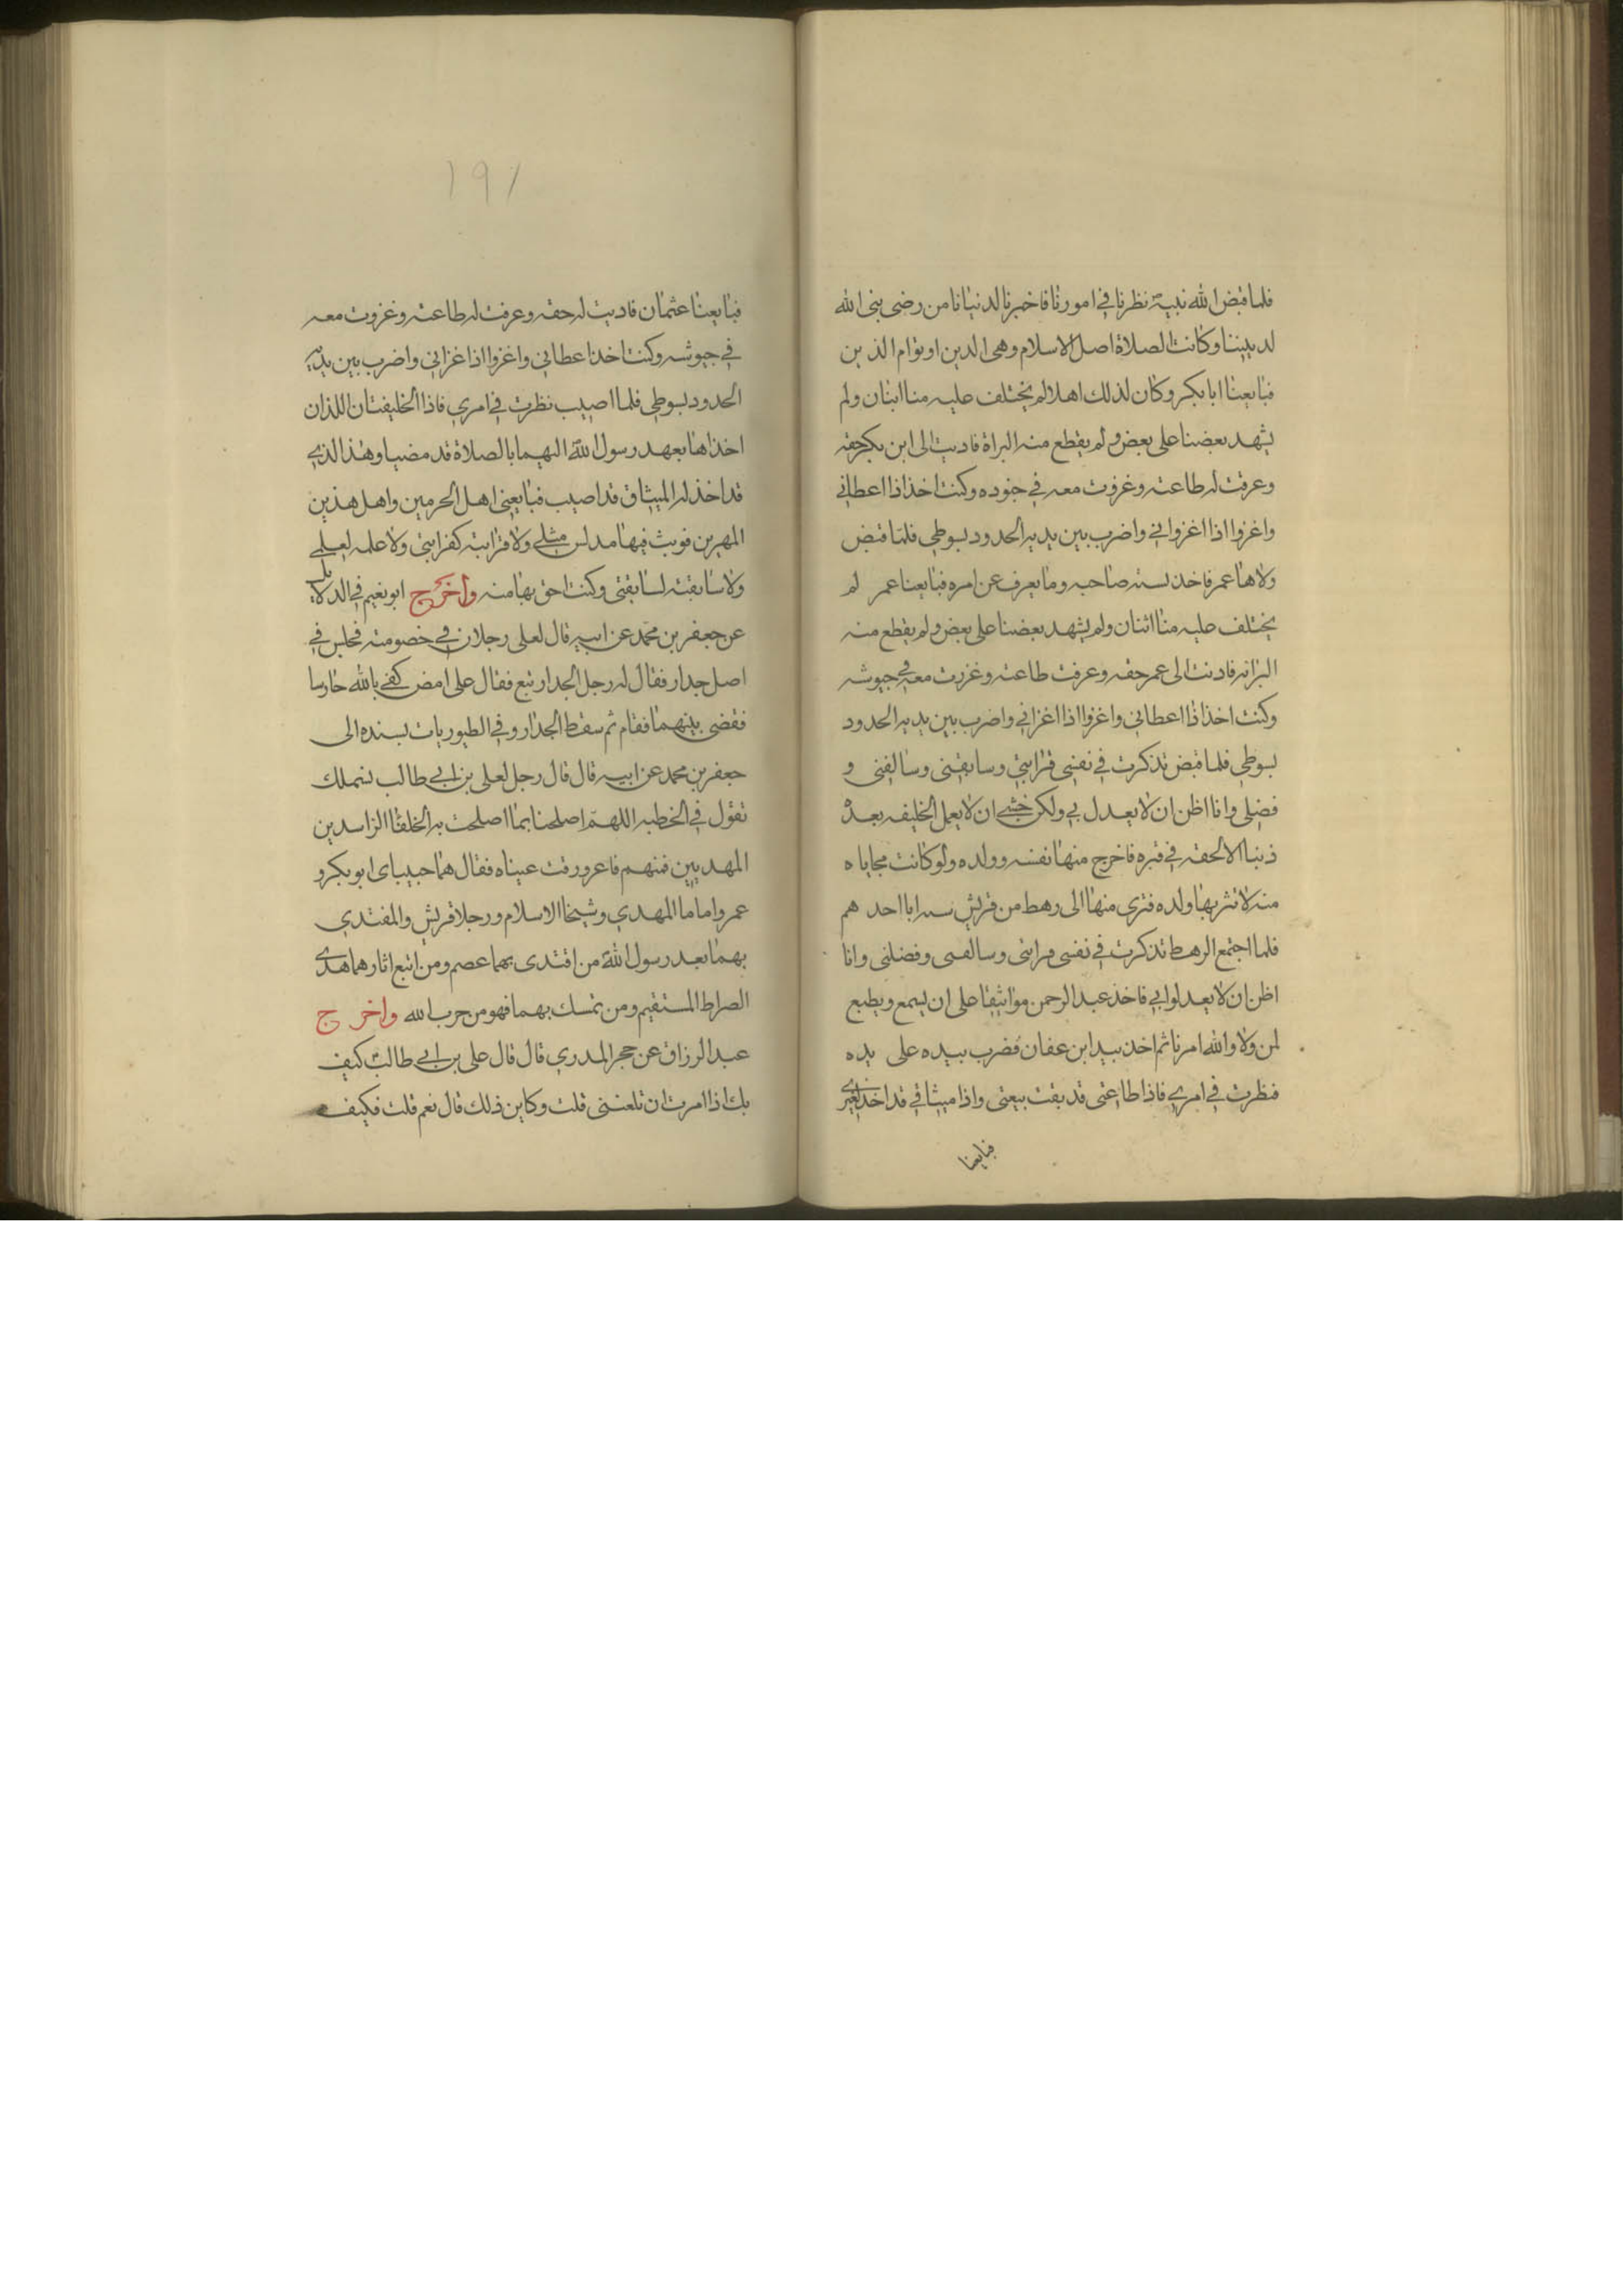 فلما قبض الله نبيه نظرنا في امورنا فاخبرنا لدنيانا من رضى نبى الله
لديننا وكانت الصلاة اصل الاسلام وهى الدين او قوام الذين
فبايعنا ابا بكر وكان لذلك اهلا لم يختلف عليه منا اثنان ولم
يشهد بعضنا على بعض ولم يقطع منه البراة فاديت الى ابن بكر حقه
وعرفت له طاعته وغزوت معه في جنوده وكنت اخذ اذا اعطاني
واغزوا اذا اغزواني واضرب بين يديه الحدود بسوطي فلما قبض
ولاها عمر فاخذ بسنه صاحبه وما يعرف عن امره فبايعنا عمر لم
يختلف عليه منا اثنان ولم يشهد بعضنا على بعض ولم يقطع منه
البرانه فاديت الى عمر حقه وعرفت طاعته وغزوت معه في جيوشه
وكنت اخذ اذا اعطاني واغزوا اذا اغزاني واضرب بين يديه الحدود
بسوطي فلما قبض تذكرت في نفسى قرابتي وسابقتنى وسالفتي و
فضلى وانا اظن ان لا يعدل بي ولكن خشي ان لا يعمل الخليفه بعده
ذنبا الالحقه في قبره فاخرج منها نفسه وولده ولو كانت محاباه
منه لاثر بها ولده فترى منها الى رهط من قريش احدهم
فلما اجتمع الرهط تذكرت في نفسى قرابتى وسالفتى وفضلنى وانا
اظن ان لا يعدلوا بي فاخذ عبد الرحمن مواثيقا على ان يسمع ويطيع
لمن ولاه الله امرنا ثم اخذ بيد ابن عفان فضرب بيده على يده
فنظرت في امري فاذا طاعتى قد بقت بيعتى واذا ميثاقي قد اخذ لغيري
فبايعنا
١٩١
فبايعنا عثمان فاديت له حقه وعرفت له طاعته وغزوت معه
في جيوشه وكنت اخذ اعطاني واغزوا اذا اغزاني واضرب بين يديه
الحدود بسوطي فلما اصيب نظرت في امري فاذا الخليفتان اللذان
اخذاها بعهد رسول الله اليهما بالصلاة قد مضيا وهذا الذي
قد اخذ له الميثاق قد اصيب فبايعني اهل الحرمين واهل هذين
المهرين فوثب فيها من ليس مثلي ولا قرابته كقرابتي ولا علمه لعلمي
ولا سابقته لسابقتى وكنت احق بها منه واخرج ابو نعيم في الدلايل
عن جعفر بن محمد عن ابيه قال لعلى رجلان في خصومته فجلس في
اصل جدار فقال له رجل الجدار تبع فقال على امض كفى بالله حارسا
فقضى بينهما فقام ثم سقط الجدار وفي الطيوريات بسنده الى
جعفر بن محمد عن ابيه قال قال رجل لعلى بن ابي طالب نسمعك
تقول في الخطبه اللهم اصلحنا بما اصلحت به الخلفا الراسدين
المهديين فمنهم فاعرورقت عيناه فقال هما حبيباى ابو بكر و
عمر واماما المهدي وشيخا الاسلام ورجلا قريش والمفتدي
بهما بعد رسول الله من اقتدى بهما عصم ومن اتبع اثارهما هدى
الصراط المستقيم ومن تمسك بهما فهو من حرب الله واخرج
عبد الرزاق عن حجر المدري قال قال على بن ابي طالب كيف
بك اذا امرت ان تلعننى قلت وكاين ذلك قال نعم قلت فكيف